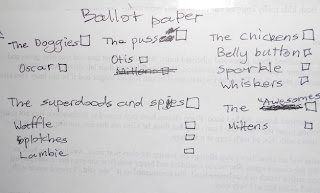 Ballot paper
The Doggies
Oscar
The puss
Otis
Mittens
The chickens
Belly button
Sparkle
Whiskers
The superdoods and spies
Waffle
Splotches
Lambie
The "Awesomes
Mittens